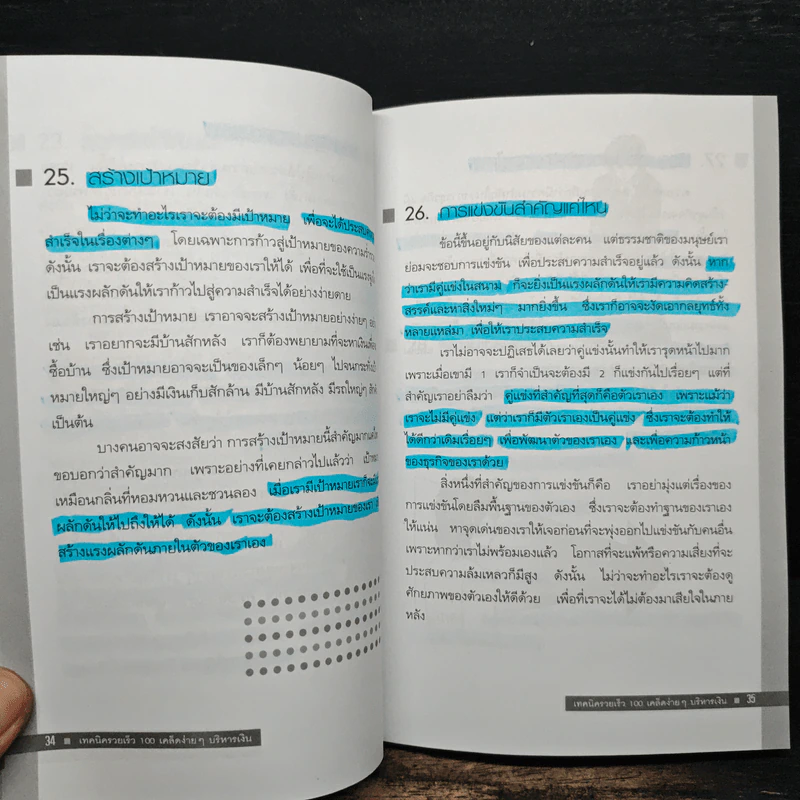 25. สร้างเป้าหมาย
ไม่ว่าจะทำอะไรเราจะต้องมีเป้าหมาย เพื่อจะได้ประสบความ
สำเร็จในเรื่องต่างๆ โดยเฉพาะการก้าวสู่เป้าหมายของความร่ำรวย
ดังนั้น เราจะต้องสร้างเป้าหมายของเราให้ได้ เพื่อที่จะใช้เป็นแรงจูงใจ
เป็นแรงผลักดันให้เราก้าวไปสู่ความสำเร็จได้อย่างง่ายดาย
การสร้างเป้าหมาย เราอาจจะสร้างเป้าหมายอย่างง่ายๆ
เช่น เราอยากจะมีบ้านสักหลัง เราก็ต้องพยายามที่จะหาเงินเพื่อ
ซื้อบ้าน ซึ่งเป้าหมายอาจจะเป็นของเล็กๆ น้อยๆ ไปจนกระทั่ง
หมายใหญ่ๆ อย่างมีเงินเก็บสักล้าน มีบ้านสักหลัง มีรถใหญ่ๆ
เป็นต้น
บางคนอาจจะสงสัยว่า การสร้างเป้าหมายนี้สำคัญมาก
ขอบอกว่าสำคัญมาก เพราะอย่างที่เคยกล่าวไปแล้วว่า
เหมือนกลิ่นที่หอมหวานและชวนลอง เมื่อเรามีเป้าหมายเราก็จะ
ผลักดันให้ไปถึงให้ได้ ดังนั้น เราจะต้องสร้างเป้าหมายของเรา
สร้างแรงผลักดันภายในตัวของเราเอง
34 เทคนิครวยเร็ว 100 เคล็ดง่ายๆ บริหารเงิน
26. การแข่งขันสำคัญแค่ไหน
ข้อนี้ขึ้นอยู่กับนิสัยของแต่ละคน แต่ธรรมชาติของมนุษย์เรา
ย่อมจะชอบการแข่งขัน เพื่อประสบความสำเร็จอยู่แล้ว ดังนั้น หาก
ว่าเรามีคู่แข่งในสนาม ก็จะยิ่งเป็นแรงผลักดันให้เรามีความคิดสร้าง-
สรรค์และหาสิ่งใหม่ๆ มากยิ่งขึ้น ซึ่งเราก็อาจจะงัดเอากลยุทธ์ทั้ง
หลายแหล่มา เพื่อให้เราประสบความสำเร็จ
เราไม่อาจจะปฏิเสธได้เลยว่าคู่แข่งนั้นทำให้เรารุดหน้าไปมาก
เพราะเมื่อเขามี 1 เราก็จำเป็นจะต้องมี 2 ก็แข่งกันไปเรื่อยๆ แต่ที่
สำคัญเราอย่าลืมว่า คู่แข่งที่สำคัญที่สุดก็คือตัวเราเอง เพราะแม้ว่า
เราจะไม่มีคู่แข่ง แต่ว่าเราก็มีตัวเราเองเป็นคู่แข่ง ซึ่งเราจะต้องทำให้
ได้ดีกว่าเดิมเรื่อยๆ เพื่อพัฒนาตัวของเราเอง และเพื่อความก้าวหน้า
ของธุรกิจของเราด้วย
สิ่งหนึ่งที่สำคัญของการแข่งขันก็คือ เราอย่ามุ่งแต่เรื่องของ
การแข่งขันโดยลืมพื้นฐานของตัวเอง ซึ่งเราจะต้องทำฐานของเราเอง
ให้แน่น หาจุดเด่นของเราให้เจอก่อนที่จะพุ่งออกไปแข่งขันกับคนอื่น
เพราะหากว่าเราไม่พร้อมเองแล้ว โอกาสที่จะแพ้หรือความเสี่ยงที่จะ
ประสบความล้มเหลวก็มีสูง ดังนั้น ไม่ว่าจะทำอะไรเราจะต้องดู
ศักยภาพของตัวเองให้ดีด้วย เพื่อที่เราจะได้ไม่ต้องมาเสียใจในภาย
หลัง
เทคนิครวยเร็ว 100 เคล็ดง่ายๆ บริหารเงิน 35